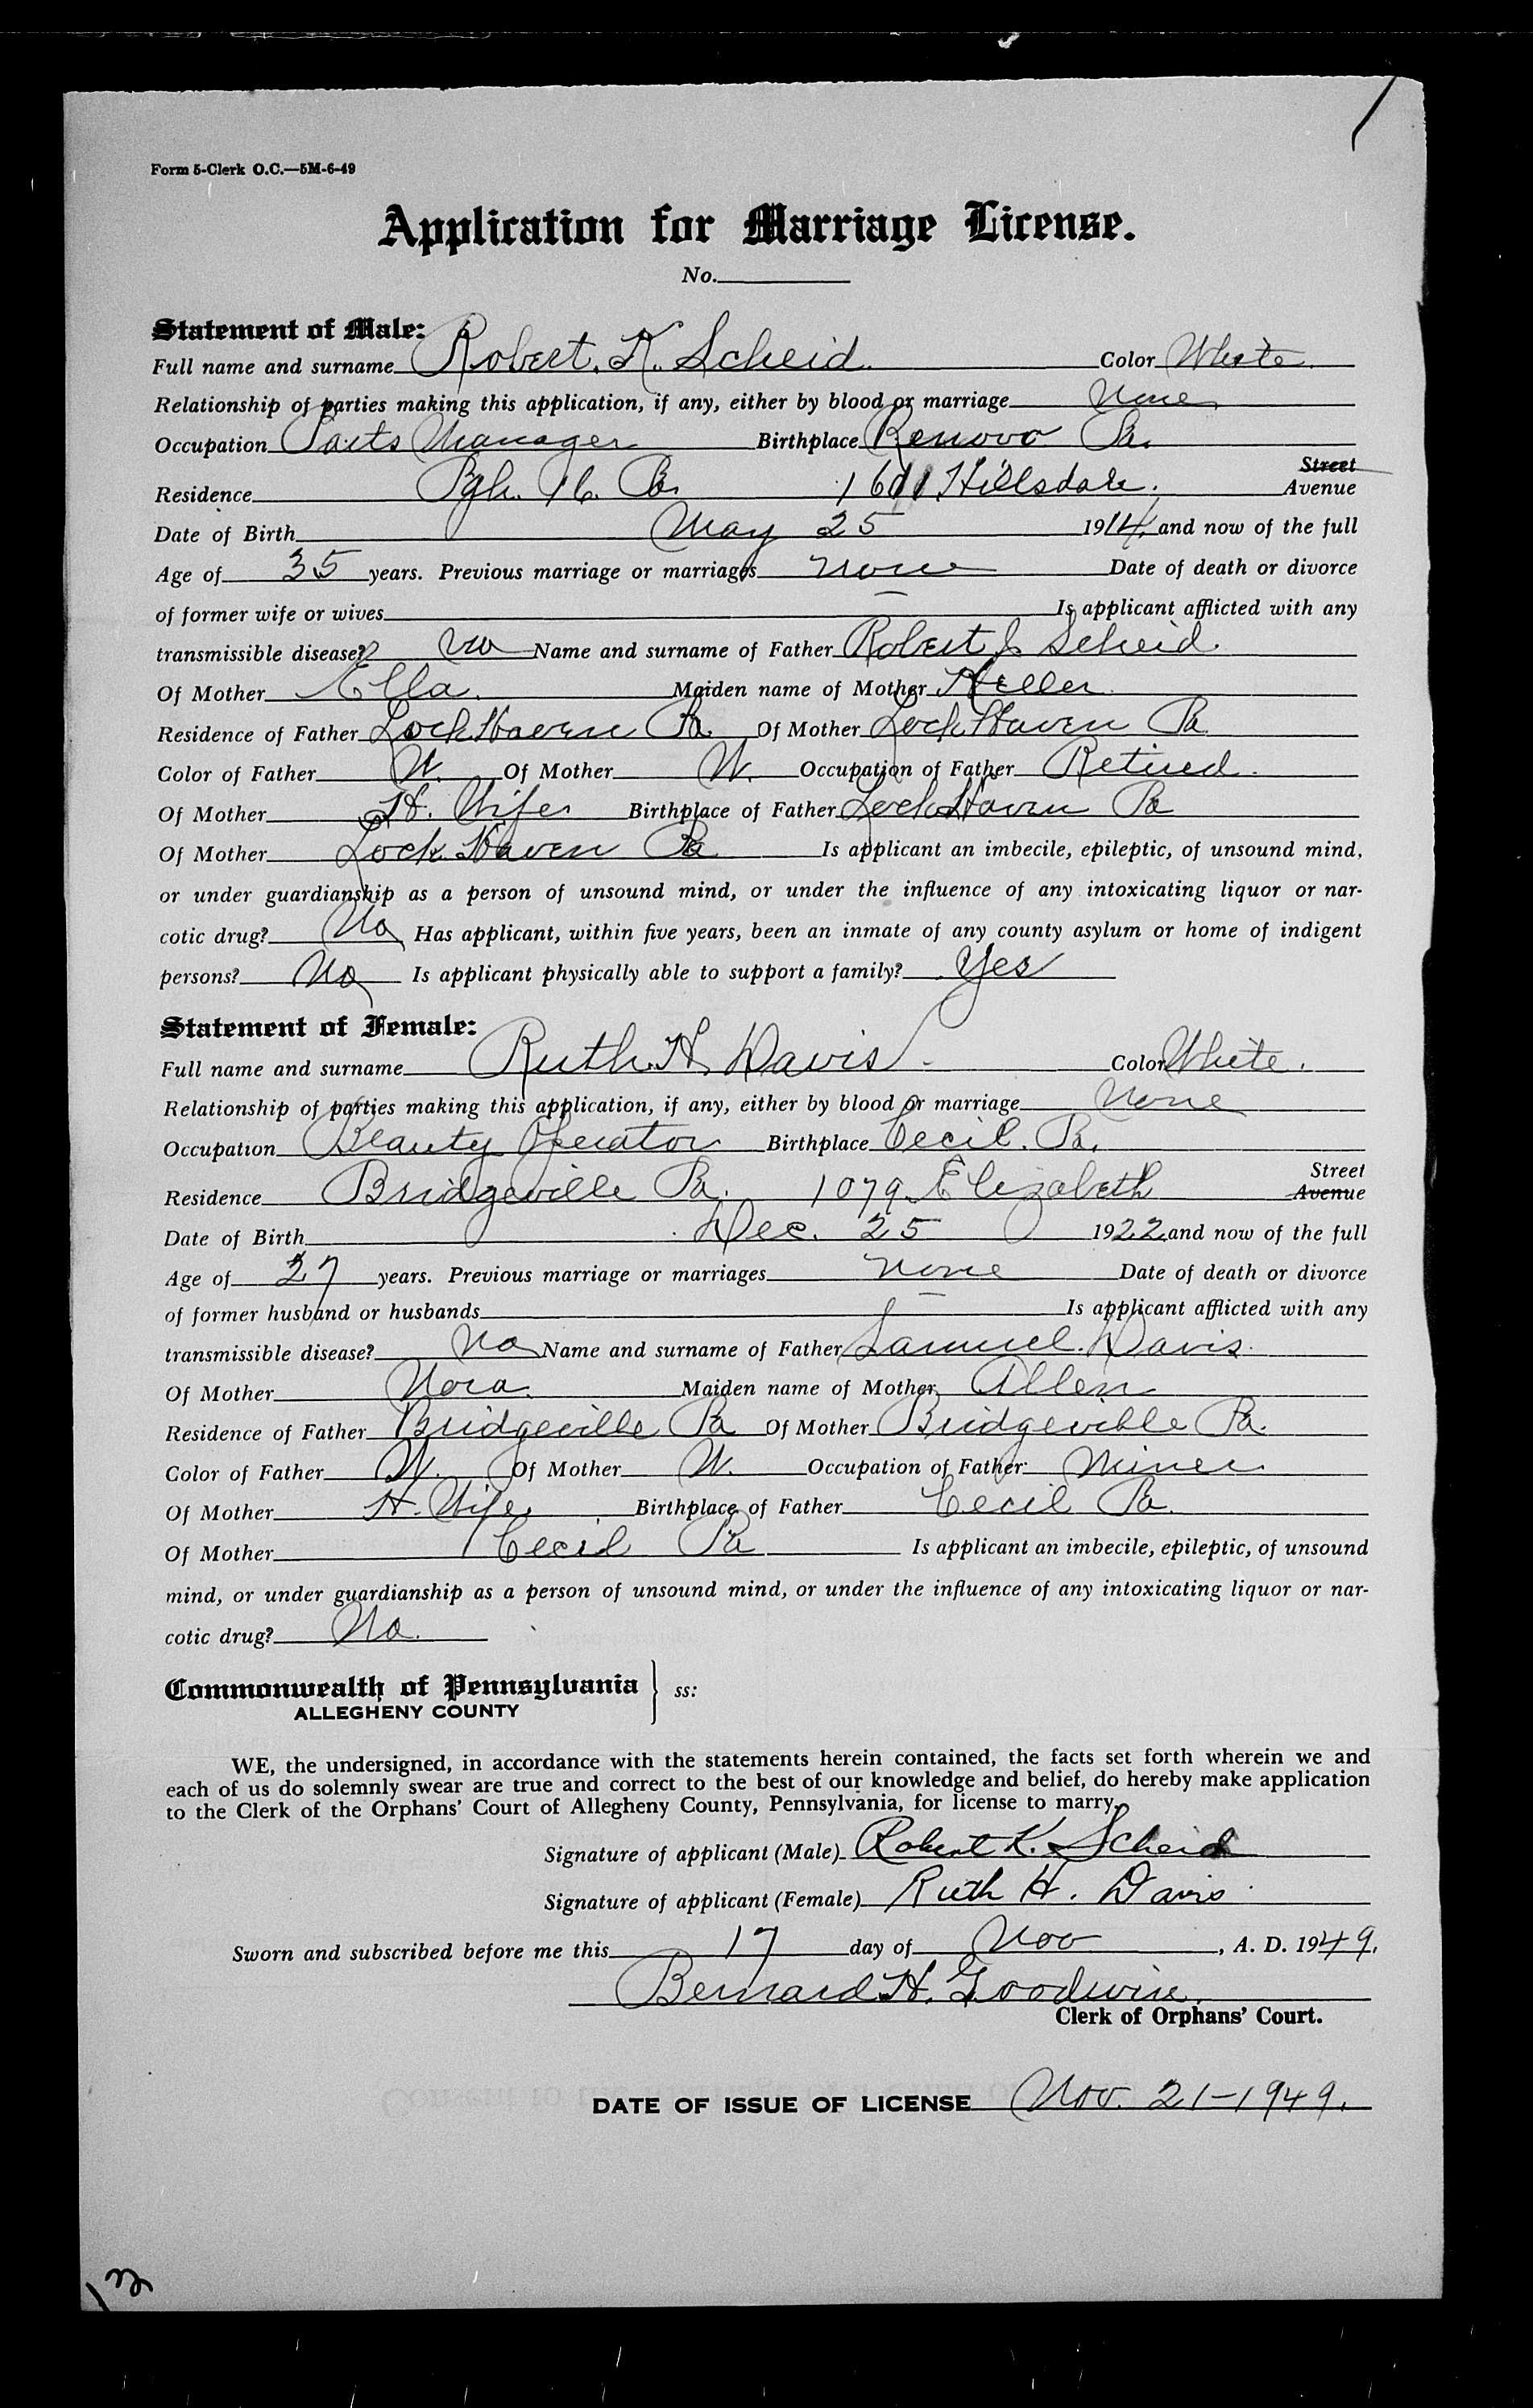 Form 5-Clerk O.C.—5M-6-49
Application for Marriage License.
No.
Statement of Male:
Full name and surname Robert. K. Scheid. Color White.
Relationship of parties making this application, if any, either by blood or marriage None
Occupation Parts Manager Birthplace Renovo Pa.
Street
Residence Pgh. 16. Pa. Hillsdale. Avenue
Date of Birth May 25 1914, and now of the full
Age of 35 years. Previous marriage or marriages none Date of death or divorce
of former wife or wives Is applicant afflicted with any
transmissible disease? No Name and surname of Father Robert J. Scheid.
Of Mother Ella. Maiden name of Mother Heller
Residence of Father Lock Haven Pa. Of Mother Lock Haven Pa
Color of Father W. Of Mother W. Occupation of Father Retired.
Of Mother H. Wife Birthplace of Father Lock Haven Pa
Of Mother Lock Haven Pa Is applicant an imbecile, epileptic, of unsound mind,
or under guardianship as a person of unsound mind, or under the influence of any intoxicating liquor or nar-
cotic drug? No Has applicant, within five years, been an inmate of any county asylum or home of indigent
persons? No Is applicant physically able to support a family? Yes
Statement of Female:
Full name and surname Ruth H. Davis. Color White.
Relationship of parties making this application, if any, either by blood or marriage None
Occupation Beauty Operator Birthplace Cecil. Pa.
Street
Residence Bridgeville Pa. 1079 Elizabeth Avenue
Date of Birth Dec. 25 1922 and now of the full
Age of 27 years. Previous marriage or marriages none Date of death or divorce
of former husband or husbands Is applicant afflicted with any
transmissible disease? No Name and surname of Father Samuel. Davis.
Of Mother Nora. Maiden name of Mother Allen
Residence of Father Bridgeville Pa Of Mother Bridgeville Pa.
Color of Father W. Of Mother W. Occupation of Father Miner
Of Mother H. Wife. Birthplace of Father Cecil Pa.
Of Mother Cecil Pa Is applicant an imbecile, epileptic, of unsound
mind, or under guardianship as a person of unsound mind, or under the influence of any intoxicating liquor or nar-
cotic drug? No.
Commonwealth of Pennsylvania } ss:
ALLEGHENY COUNTY
WE, the undersigned, in accordance with the statements herein contained, the facts set forth wherein we and
each of us do solemnly swear are true and correct to the best of our knowledge and belief, do hereby make application
to the Clerk of the Orphans' Court of Allegheny County, Pennsylvania, for license to marry.
Signature of applicant (Male) Robert K. Scheid
Signature of applicant (Female) Ruth H. Davis
Sworn and subscribed before me this 17 day of Nov, A. D. 1949.
Bernard H. Goodwin.
Clerk of Orphans' Court.
DATE OF ISSUE OF LICENSE Nov. 21-1949.